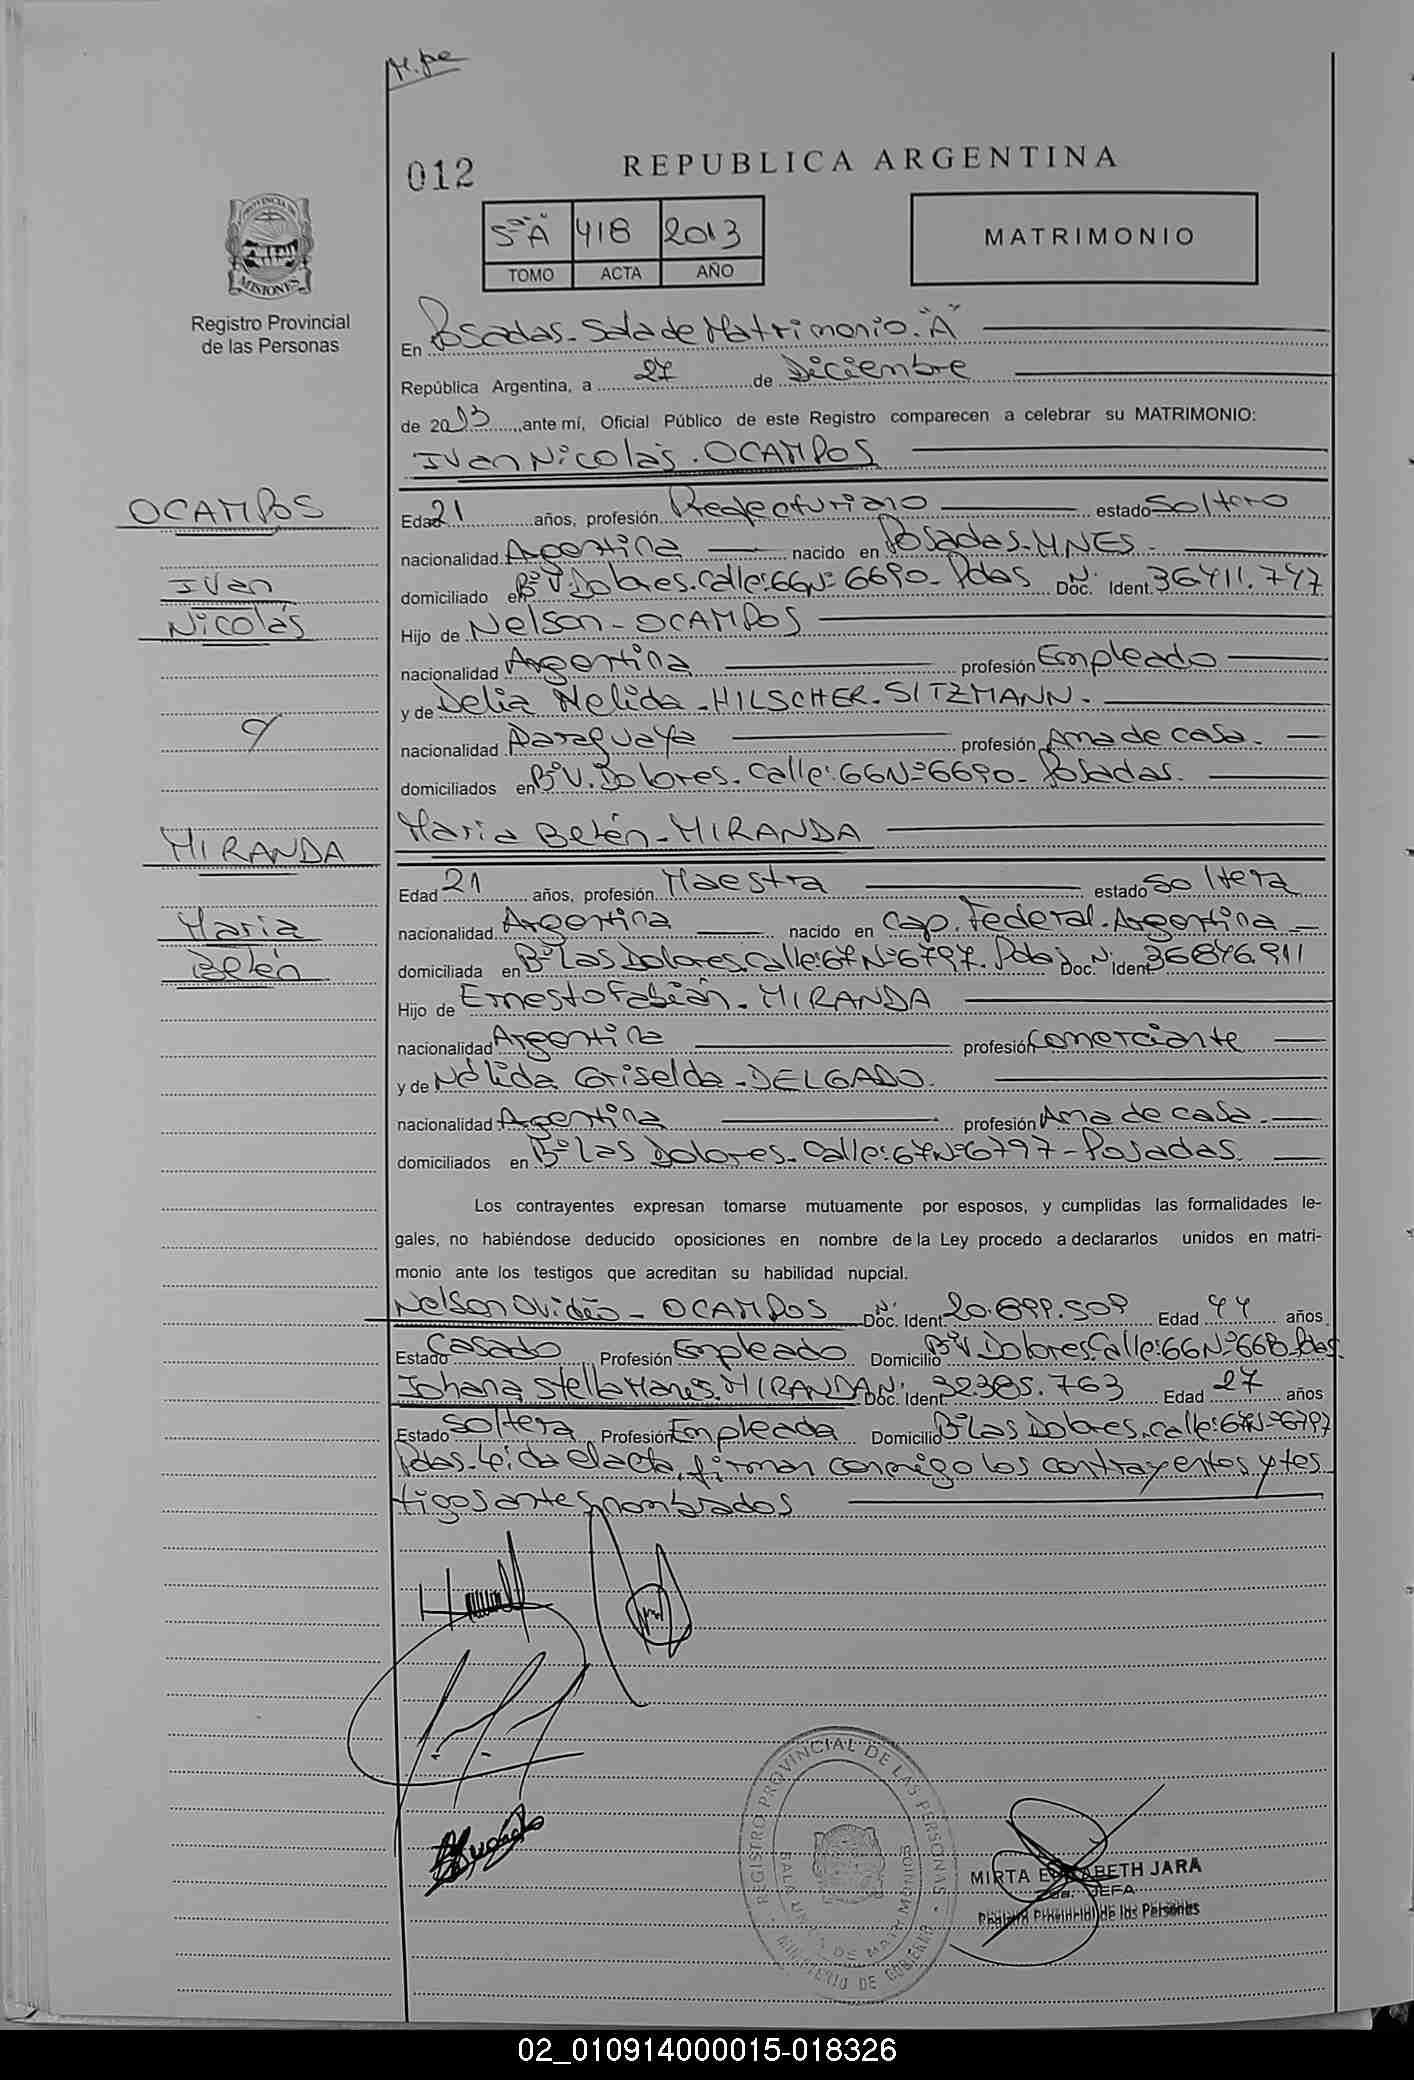 M. pe
012
REPUBLICA ARGENTINA
5º "A" 418 2013
TOMO ACTA AÑO
MATRIMONIO
PROVINCIA DE MISIONES
Registro Provincial
de las Personas
En Posadas - Sala de Matrimonio. "A"
República Argentina, a 27 de Diciembre
de 2013 ante mí, Oficial Público de este Registro comparecen a celebrar su MATRIMONIO:
Ivan Nicolás. OCAMPOS
OCAMPOS
Ivan
Nicolás
Edad 21 años, profesión estado Soltero
nacionalidad Argentina nacido en Posadas - MNES.
domiciliado en Bº V. Dolores. Calle: 66 Nº 6690 - Pdas Nº Doc. Ident. 36.411.747
Hijo de Nelson - OCAMPOS
nacionalidad Argentina profesión Empleado
y de Delia Nelida - HILSCHER - SITZMANN.
nacionalidad Paraguaya profesión Ama de casa.
domiciliados en Bº V. Dolores. Calle: 66 Nº 6690 - Posadas.
y
Maria Belén - MIRANDA
MIRANDA
Maria
Belén
Edad 21 años, profesión Maestra estado Soltera
nacionalidad Argentina nacido en Cap. Federal. Argentina
domiciliada en Bº Las Dolores. Calle: 67 Nº 6797. Pdas Nº Doc. Ident. 36.846.911
Hijo de Ernesto Fabián - MIRANDA
nacionalidad Argentina profesión Comerciante
y de Nélida Griselda - DELGADO.
nacionalidad Argentina profesión Ama de casa.
domiciliados en Bº Las Dolores. Calle: 67 Nº 6797 - Posadas.
Los contrayentes expresan tomarse mutuamente por esposos, y cumplidas las formalidades le-
gales, no habiéndose deducido oposiciones en nombre de la Ley procedo a declararlos unidos en matri-
monio ante los testigos que acreditan su habilidad nupcial.
Nelson Ovidio - OCAMPOS Nº Doc. Ident. 20.699.509 Edad 44 años
Estado Casado Profesión Empleado Domicilio Bº V. Dolores. Calle: 66 Nº Pdas.
Johana Stella Maris. MIRANDA Nº Doc. Ident. 32.385.763 Edad 27 años
Estado Soltera Profesión Empleada Domicilio Bº Las Dolores. Calle: 67 Nº 6797
Pdas. Leída el acta, firman conmigo los contrayentes y tes
tigos antes nombrados
REGISTRO PROVINCIAL DE LAS PERSONAS
SALA DE MATRIMONIOS
MINISTERIO DE GOBIERNO
MIRTA ELIZABETH JARA
JEFA
Registro Provincial de las Personas
02_010914000015-018326